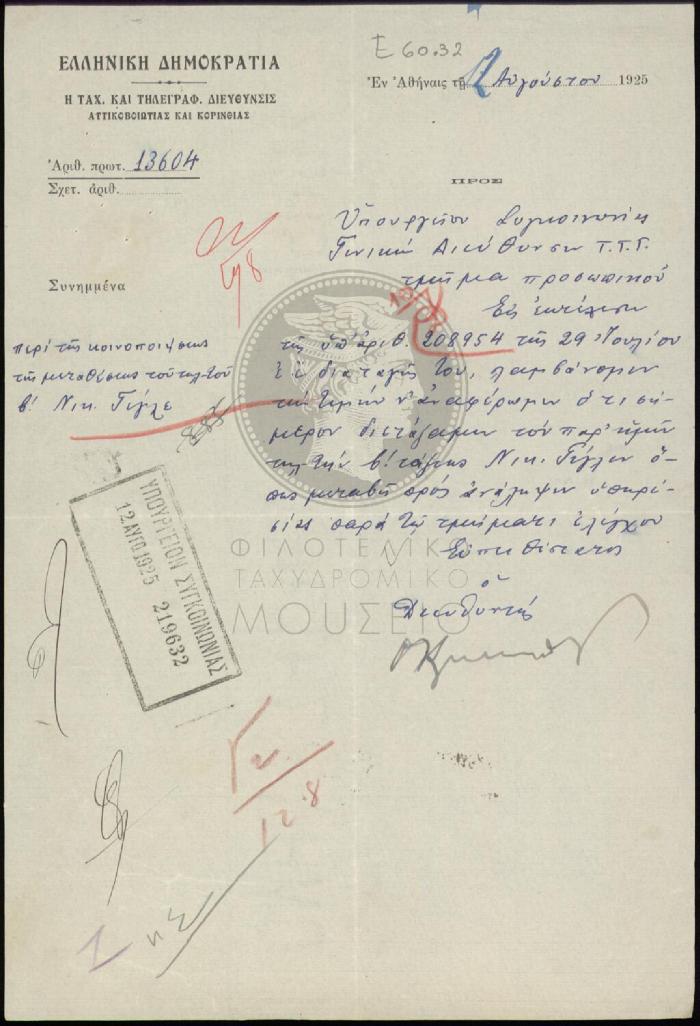 Ε 60.32
ΕΛΛΗΝΙΚΗ ΔΗΜΟΚΡΑΤΙΑ
Η ΤΑΧ. ΚΑΙ ΤΗΛΕΓΡΑΦ. ΔΙΕΥΘΥΝΣΙΣ
ΑΤΤΙΚΟΒΟΙΩΤΙΑΣ ΚΑΙ ΚΟΡΙΝΘΙΑΣ
Ἐν Ἀθήναις τῇ 12 Αὐγούστου 1925
Ἀριθ. πρωτ. 13604
Σχετ. ἀριθ.
ΠΡΟΣ
Ὑπουργεῖον Συγκοινωνίας
Γενικὴν Διεύθυνσιν Τ.Τ.Τ.
τμῆμα προσωπικοῦ
Συνημμένα
περὶ τῆς κοινοποιήσεως
τῆς μεταθέσεως τοῦ τηλ/τοῦ
β' Νικ. Γέγλε
Εἰς ἐκτέλεσιν
τῆς ὑπ' ἀριθ. 208954 τῆς 29 Ἰουλίου
ἐ.ἔ διαταγῆς του, λαμβάνομεν
τὴν τιμὴν ν' ἀναφέρωμεν ὅτι σή-
μερον διετάξαμεν τὸν παρ' ἡμῖν
τηλ/τὴν β' τάξεως Νικ. Γέγλεν ὅ-
πως μεταβῇ πρὸς ἀνάληψιν ὑπηρε-
σίας παρὰ τῷ τμήματι ἐλέγχου
Εὐπειθέστατος
ὁ
Διευθυντής
ΥΠΟΥΡΓΕΙΟΝ ΣΥΓΚΟΙΝΩΝΙΑΣ
12 ΑΥΓΟ 1925 219632
12.8
ΦΙΛΟΤΕΛΙΚΟ
ΤΑΧΥΔΡΟΜΙΚΟ
ΜΟΥΣΕΙΟ